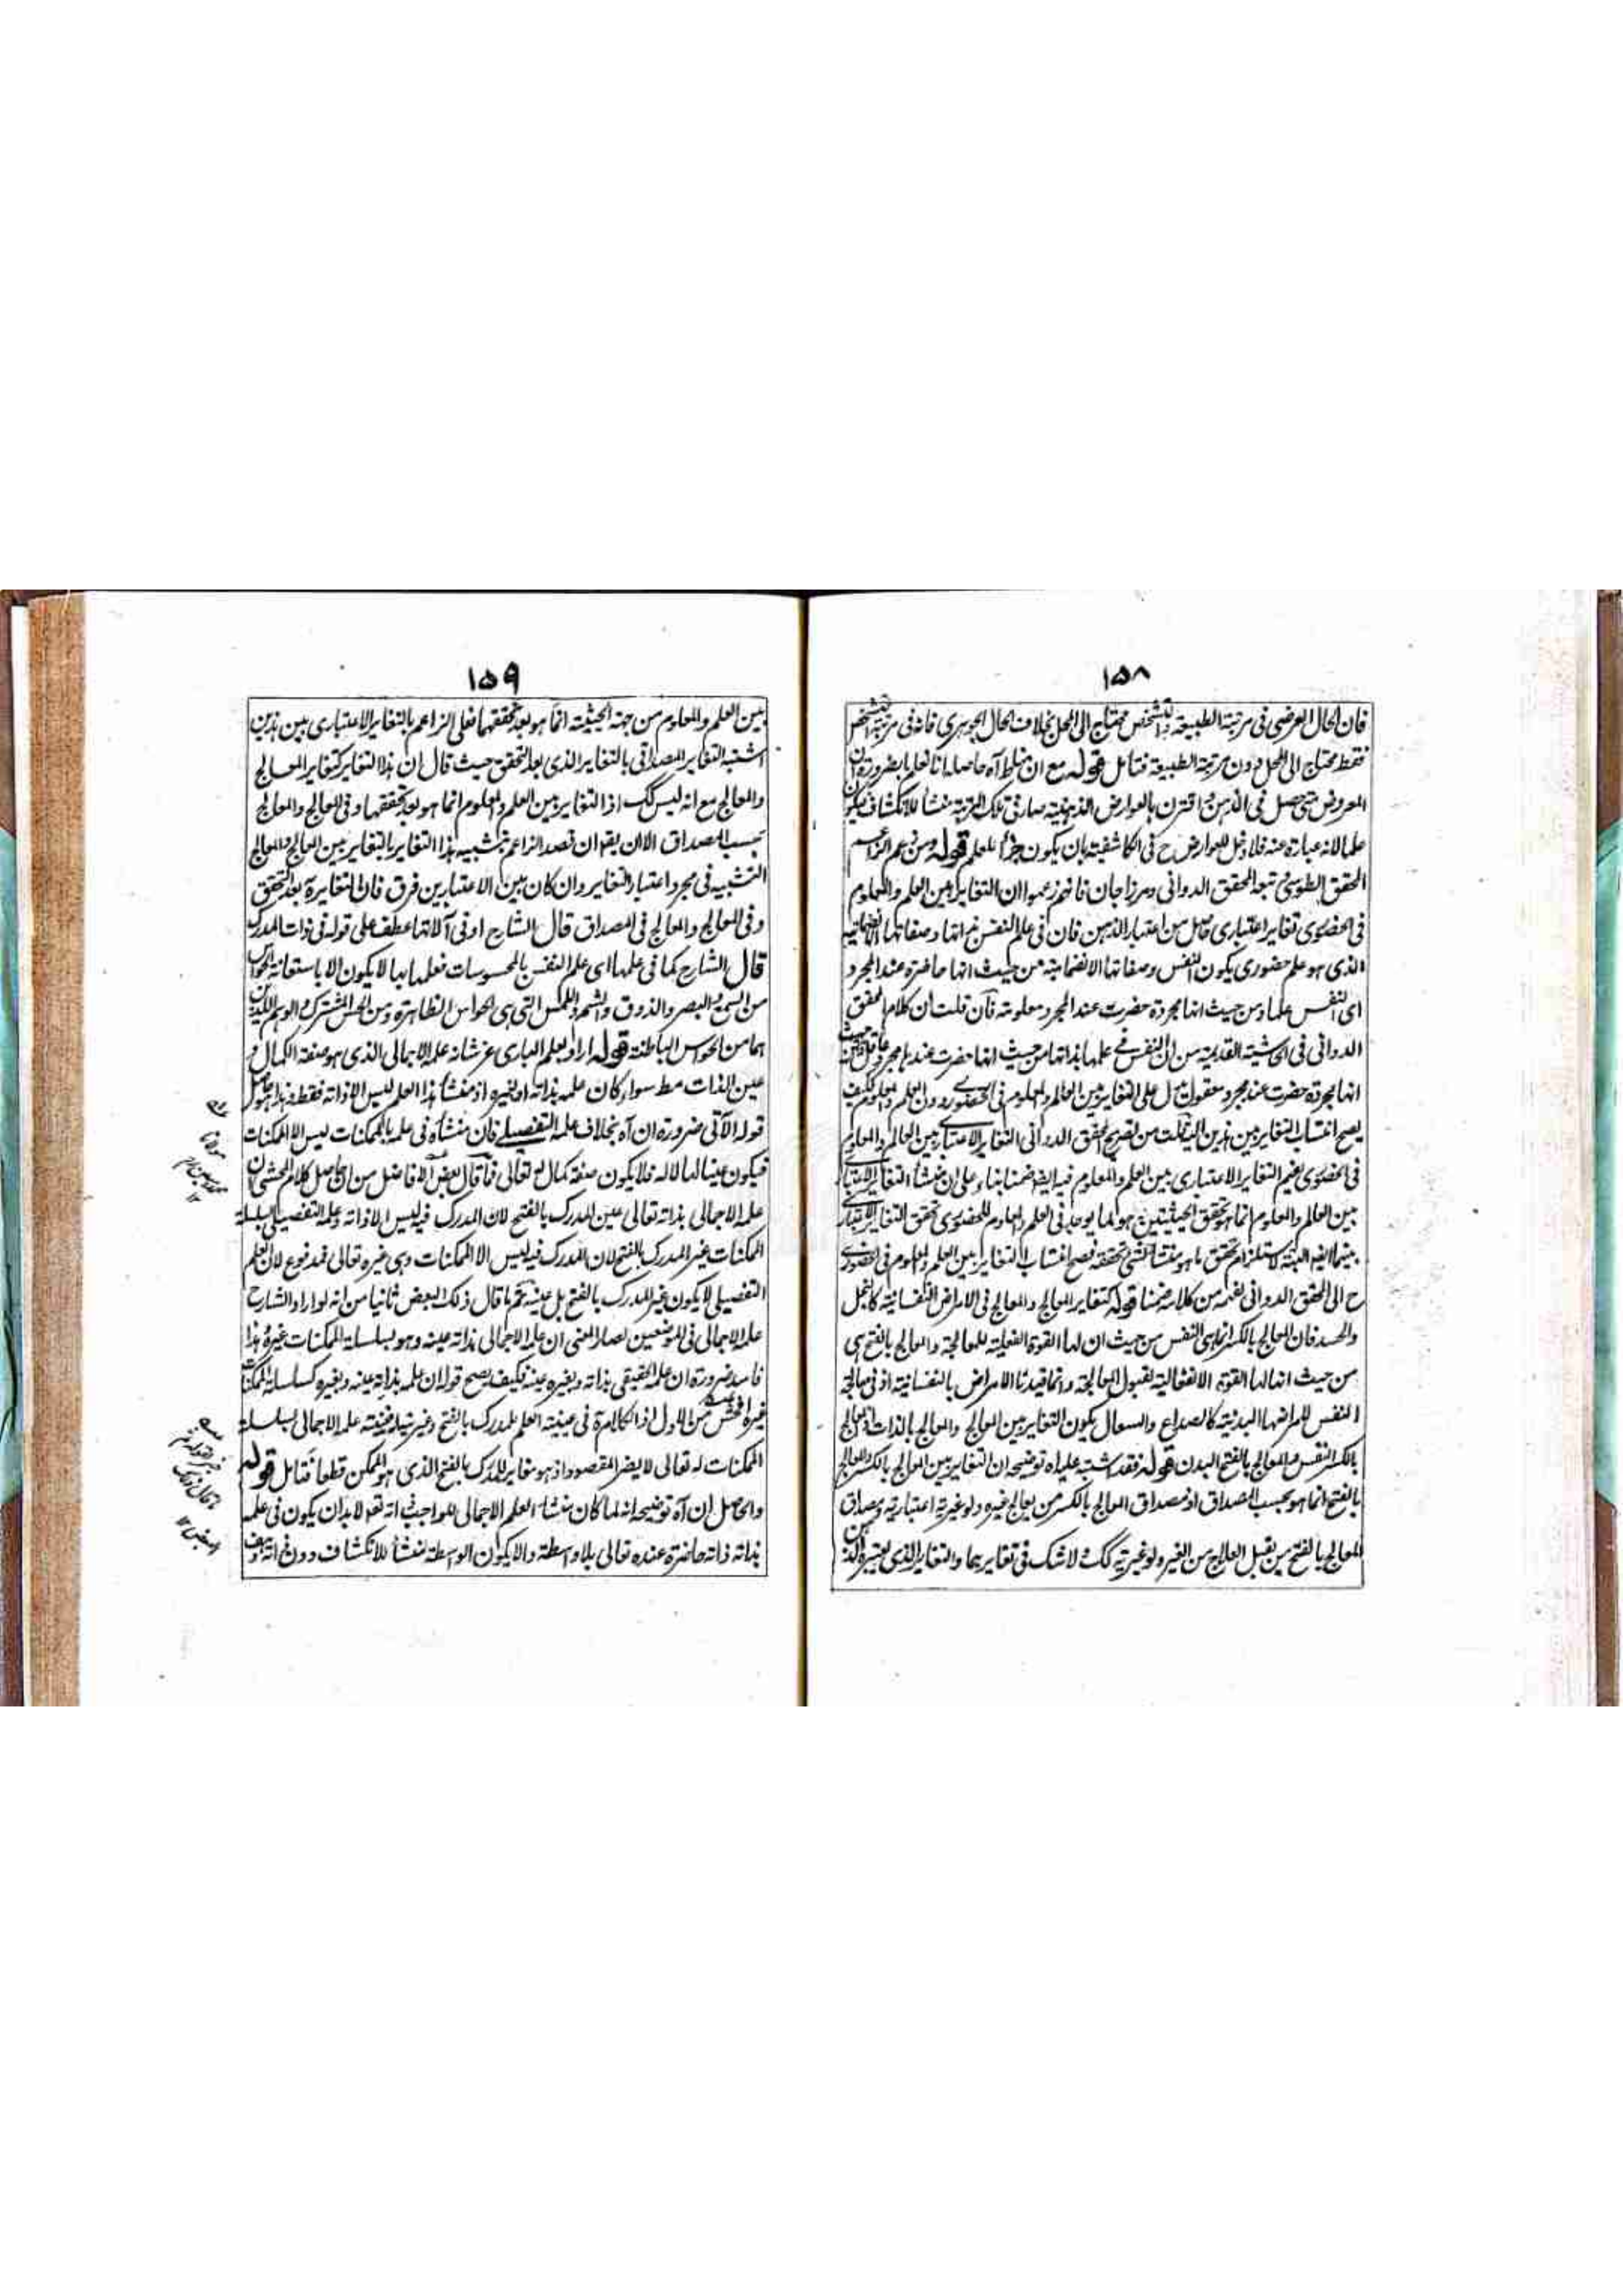 ١٥٨
فان الحال العرضى فى مرتبة الطبيعة والتشخص محتاج الى المحل بخلاف الحال الجوهرى فانه فى مرتبة التشخص
فقط محتاج الى المحل دون مرتبة الطبيعة فتامل قوله مع ان خلط آه حاصله انا نعلم بالضرورة ان
المعروض متى حصل فى الذهن واقترن بالعوارض الذهنية صار فى تلك المرتبة منشأ للانكشاف فيكون
علما لانه عبارة عنه فلا دخل للعوارض ح فى الكاشفية بان يكون جزأ للعلم قوله ومن ههنا زعم
المحقق الطوسى تبعه المحقق الدوانى ومرزا جان فانهم زعموا ان التغاير بين العلم والمعلوم
فى الحضورى تغاير اعتبارى حاصل من اعتبار الذهن فان فى علم النفس بذاتها وصفاتها الانضمامية
الذى هو علم حضورى يكون النفس وصفاتها الانضمامية من حيث انها حاضرة عند المجرد
اى النفس علما ومن حيث انها مجردة حضرت عند المجرد معلومة فان قلت ان كلام المحقق
الدوانى فى الحاشية القديمة من ان النفس فى علمها بذاتها من حيث انها حضرت عندها مجرد عاقل ومن حيث
انها مجردة حضرت عند مجرد معقول يدل على التغاير بين العالم والمعلوم فى الحضورى دون العلم والمعلوم فكيف
يصح انتساب التغاير بين هذين اليه قلت من تصريح المحقق الدوانى التغاير الاعتبارى بين العالم والمعلوم
فى الحضورى يفهم التغاير الاعتبارى بين العلم والمعلوم فيه ايضا ضمنا بناء على ان منشأ التغاير الاعتبارى
بين العالم والمعلوم انما هو تحقق الحيثيتين هو لما يوجد فى العلم والمعلوم للحضورى تحقق التغاير الاعتبارى
بينهما ايضا البتة لاستلزام تحقق ما هو منشأ لشئ تحققه فصح انتساب التغاير بين العلم والمعلوم فى الحضورى
ح الى المحقق الدوانى لفهمه من كلامه ضمنا قوله كتغاير المعالج والمعالج فى الامراض النفسانية كالبخل
والحسد فان المعالج بالكسر انما هى النفس من حيث ان لها القوة الفعلية للمعالجة والمعالج بالفتح هى
من حيث ان لها القوة الانفعالية لقبول المعالجة وانما قيدنا الامراض بالنفسانية اذ فى معالجة
النفس لامراضها البدنية كالصداع والسعال يكون التغاير بين المعالج والمعالج بالذات اذ المعالج
بالكسر النفس والمعالج بالفتح البدن قوله فقد اشتبه عليه آه توضيحه ان التغاير بين المعالج بالكسر والمعالج
بالفتح انما هو بحسب المصداق اذ مصداق المعالج بالكسر من يعالج غيره ولو غيرية اعتبارية ومصداق
المعالج بالفتح من يقبل العلاج من الغير ولو غيرية كك ولا شك فى تغايرهما والتغاير الذى يعتبره الذهن
١٥٩
بين العلم والمعلوم من جهة الحيثية انما هو بعد تحققهما فعلى الزاعم بالتغاير الاعتبارى بين هذين
اشتبه التغاير المصداقى بالتغاير الذى بعد التحقق حيث قال ان هذا التغاير كتغاير المعالج
والمعالج مع انه ليس كك اذ التغاير بين العلم والمعلوم انما هو بعد تحققهما وفى المعالج والمعالج
بحسب المصداق الا ان يقم ان قصد الزاعم بتشبيه هذا التغاير بالتغاير بين المعالج والمعالج
التشبيه فى مجرد اعتبار التغاير وان كان بين الاعتبارين فرق فان التغاير ههنا بعد التحقق
وفى المعالج والمعالج فى المصداق قال الشارح او فى آلاتها عطف على قوله فى ذات المدرك
قال الشارح كما فى علمها اى علم النفس بالمحسوسات فعلمها بها لا يكون الا باستعانة الحواس
من السمع والبصر والذوق والشم واللمس التى هى الحواس الظاهرة ومن الحس المشترك والوهم اللذين
هما من الحواس الباطنة قوله اراد بعلم البارى عز شانه علمه الاجمالى الذى هو صفة الكمال و
عين الذات مط سواء كان علمه بذاته او بغيره اذ منشأ هذا العلم ليس الا ذاته فقط وهذا هو حاصل
قوله الآتى ضرورة ان آه بخلاف علمه التفصيلى فان منشأه فى علمه بالممكنات ليس الا الممكنات
فيكون عينا لها لا له فلا يكون صفة كمال له تعالى فما قال بعض الافاضل من ان حاصل كلام المحشى ان
علمه الاجمالى بذاته تعالى عين المدرك بالفتح لان المدرك فيه ليس الا ذاته وعلمه التفصيلى بسلسلة
الممكنات غير المدرك بالفتح لان المدرك فيه ليس الا الممكنات وهى غيره تعالى فمدفوع لان العلم
التفصيلى لا يكون غير المدرك بالفتح بل عينه ثم ما قال ذلك البعض ثانيا من انه لو اراد الشارح
علمه الاجمالى فى الموضعين لصار المعنى ان علمه الاجمالى بذاته عينه وهو بسلسلة الممكنات غيره وهذا
فاسد ضرورة ان علمه الحقيقى بذاته وبغيره عينه فكيف يصح قوله ان علمه بذاته عينه وبغيره كسلسلة الممكنات
غيره افحش من الاول اذ الكلام فى عينية العلم للمدرك بالفتح وغيريته له فعينية علمه الاجمالى بسلسلة
الممكنات له تعالى لا يضر المقصود اذ هو مغاير للمدرك بالفتح الذى هو الممكن قطعا فتامل قوله
والحاصل ان آه توضيحه انه لما كان منشأ العلم الاجمالى للواجب ذاته تعم لا بد ان يكون فى علمه
بذاته ذاته حاضرة عنده تعالى بلا واسطة والا يكون الواسطة منشأ للانكشاف دون ذاته
مولانا